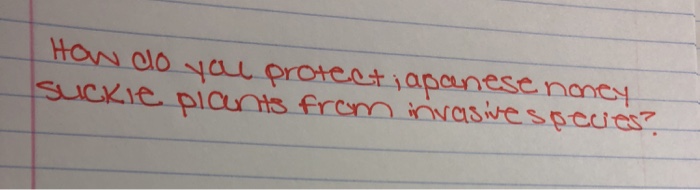 How do you protect japanese honey
suckle plants from invasive species?